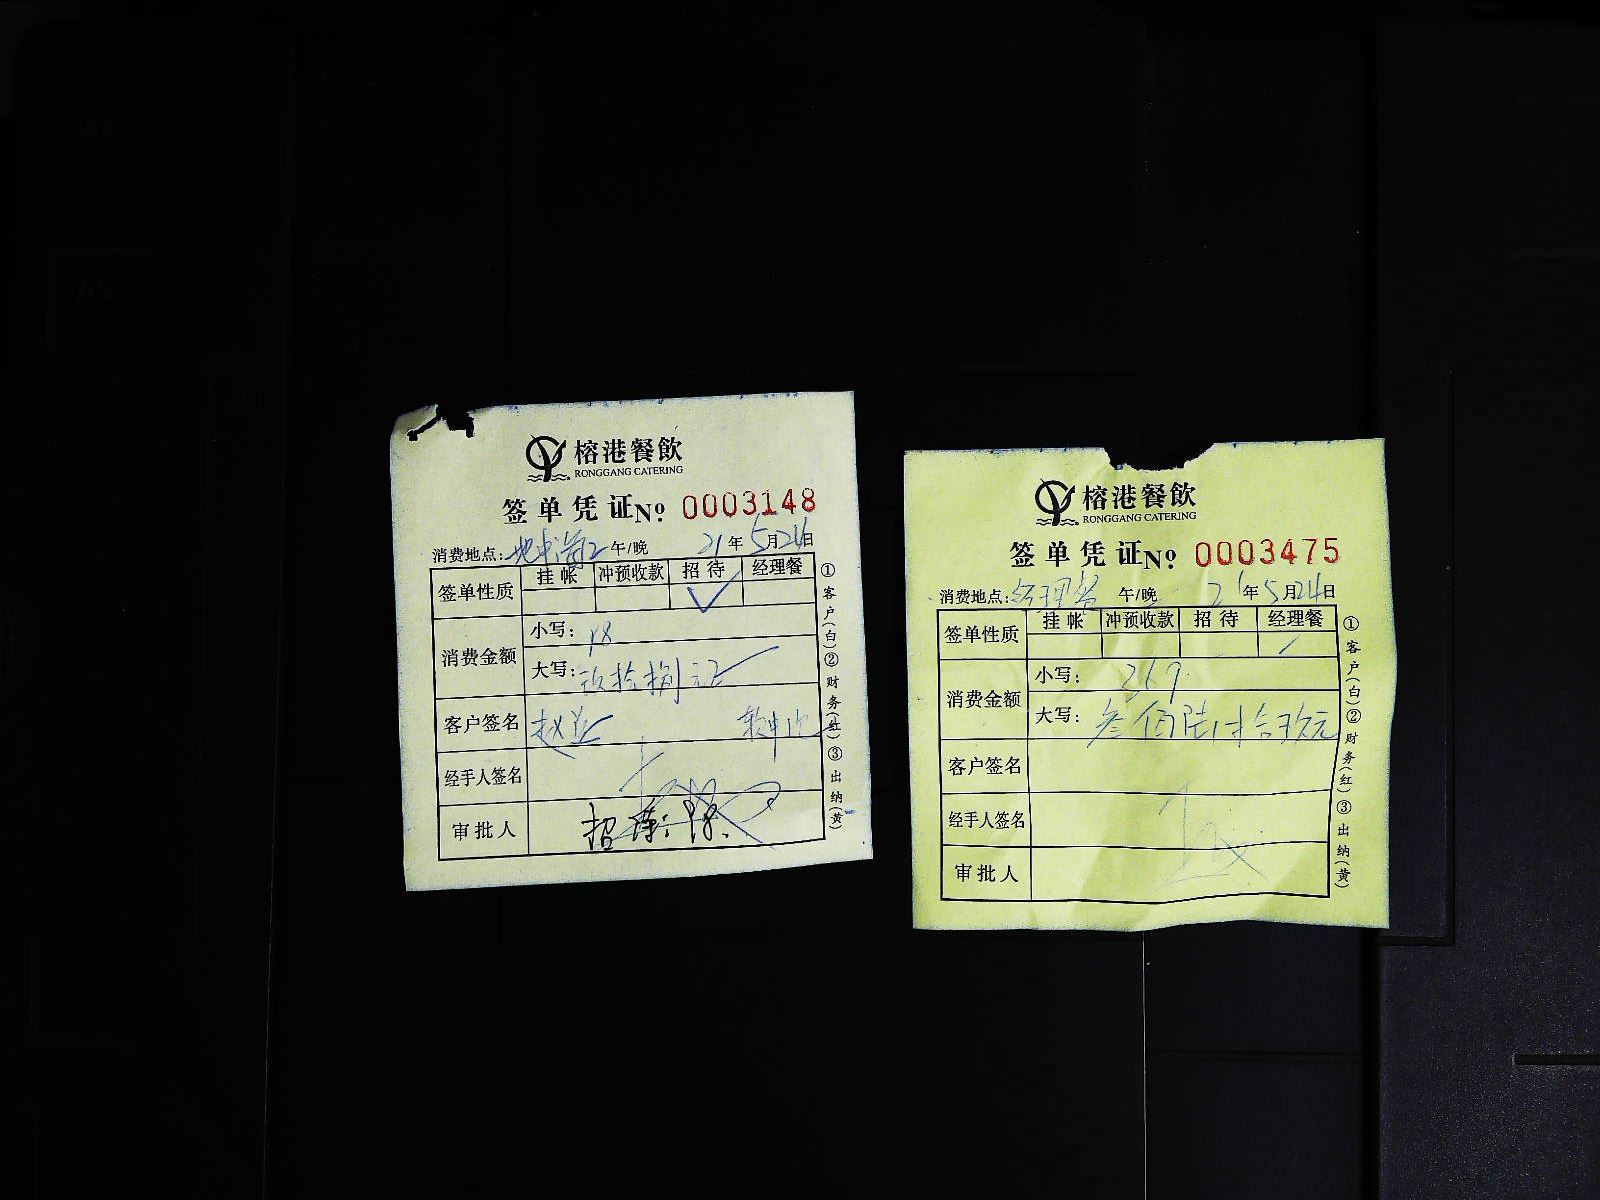 榕港餐飲
RONGGANG CATERING
签单凭证No. 0003148
消费地点:地中海2 午/晚 21年5月24日
签单性质 挂帐 冲预收款 招待 经理餐
√
消费金额 小写: 98
大写: 玖拾捌元正
客户签名 赵
经手人签名
审批人 招待: 98.
①客户(白)②财务(红)③出纳(黄)
榕港餐飲
RONGGANG CATERING
签单凭证No. 0003475
消费地点:经理餐 午/晚 21年5月24日
签单性质 挂帐 冲预收款 招待 经理餐
消费金额 小写: 369
大写: 叁佰陆拾玖元
客户签名
经手人签名
审批人
①客户(白)②财务(红)③出纳(黄)